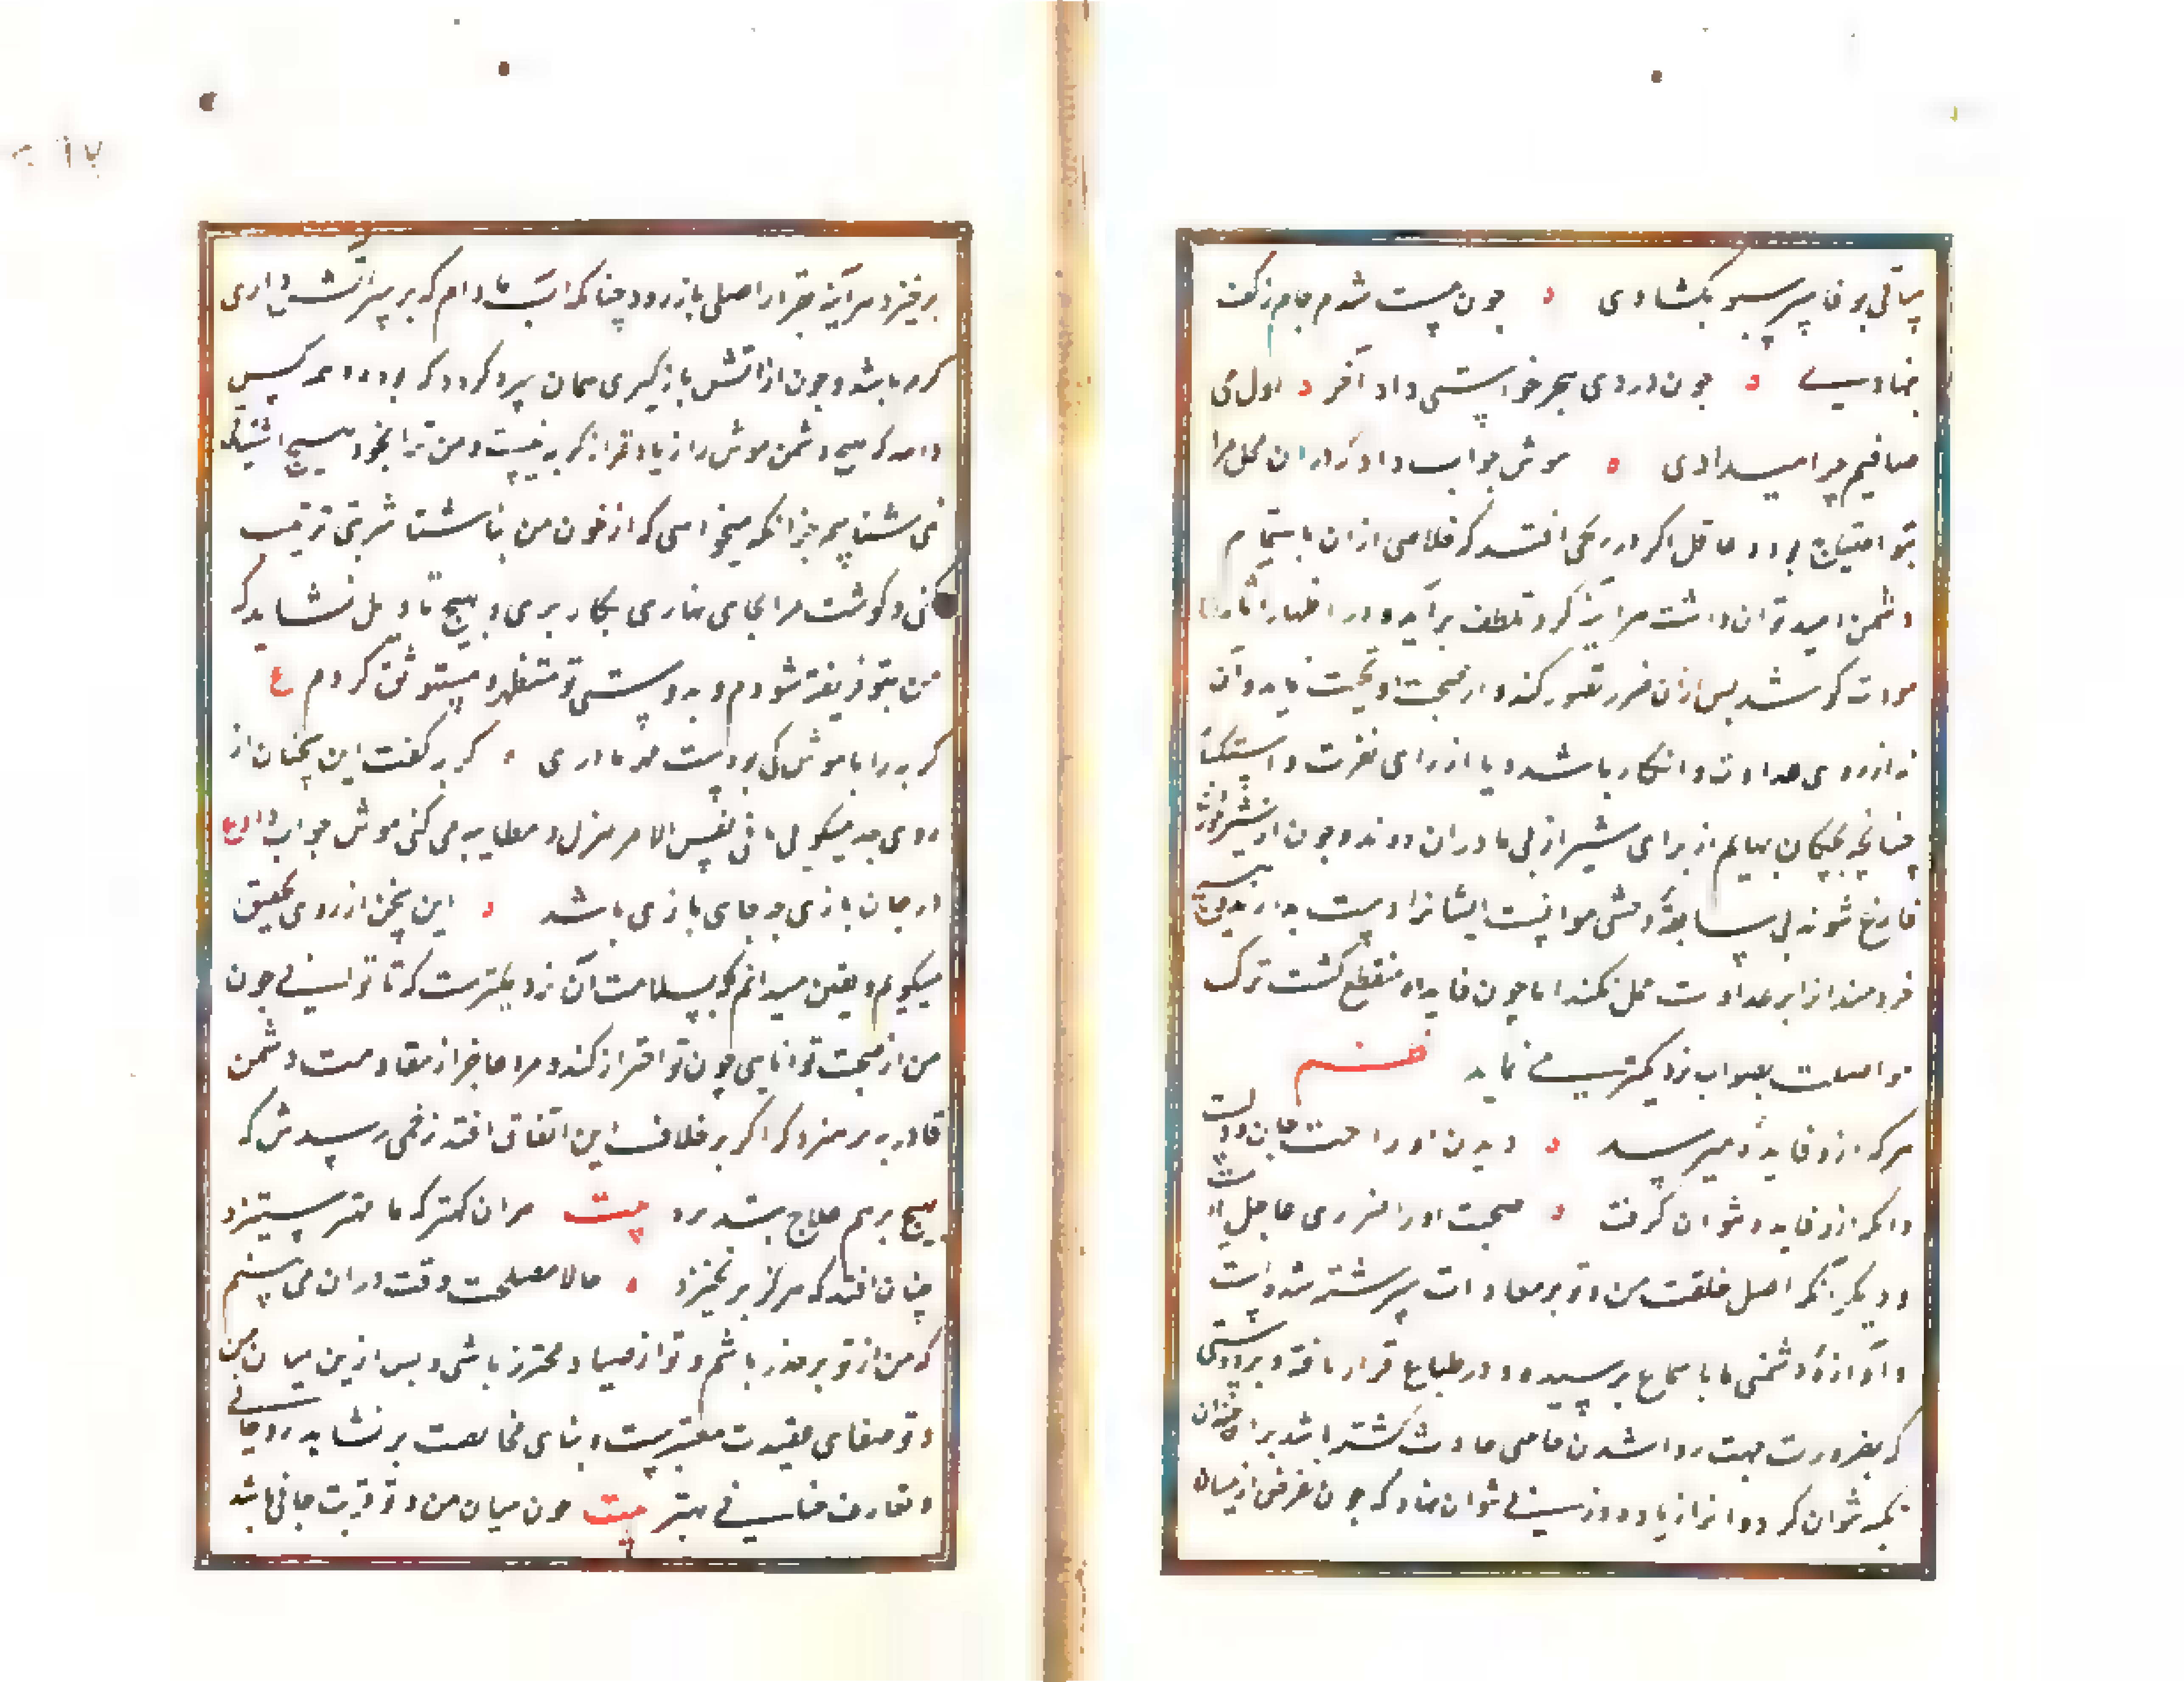 ساقی بوفا سر سبو بکشادی ، چون مست شدم جام ز کف
بنهادی ، چون دردی هجر خواستی داد آخر ، اول می
صافیم چرا میدادی ، موش جواب داد که دران محل مرا
بتو احتیاج بود و عاقل اکر در رنجی افتد که خلاصی ازان باستمام
دشمن امید توان داشت هرآینه کرد تلطف برآید و در اظهار آثار
مودت کوشد پس ازان ضرر تصور کند و از صحبت او تجنب نماید و آن
نه از روی عداوت و انکار باشد و یا از رای نفرت و استکبار
چنانچه بچکان بهایم از برای شیر از پی مادران دوند و چون از شیر خوردن
فارغ شوند بی سابقه وحشی موانست ایشانرا دست بدارند هیچ
خردمند انرا بر عداوت حمل نکند اما چون فایده منقطع کشت ترک
مواصلت بصواب نزدیکتر می نماید
هرکه ازو فایده میرسد ، دیدن او راحت جان و دلست
وانکه ازو فایده نتوان کرفت ، صحبت او را ضرری حاصل است
و دیکر آنکه اصل خلقت من و تو بر معادات سرشته شده است
و آوازه دشمنی ما باسماع رسیده و در طباع قرار یافته و بر دوستی
که بضرورت جهت روا شدن حاجتی حادث کشته باشد بران چندان
تکیه نتوان کرد و انرا زیاده وزنی نتوان نهاد که چون غرض از میان
برخیزد هرآینه بقرار اصلی باز رود چنانکه آب ما دام که بر سر آتش داری
کرم باشد و چون از آتش باز کیری همان سرد کردد که بود و همه کس
داند که هیچ دشمن موش را زیاده تر از کربه نیست و من ترا بخود هیچ اشتیاقی
نمی شناسم جز آنکه میخواهی که از خون من ناشتا شربتی ترتیب
کنی و کوشت مرا بجای نهاری بکار بری و بهیچ تاویل نشاید که
من بتو فریفته شوم و بدوستی تو مستظهر و مستوثق کردم ع
کربه را با موش کی بودست مهر مادری ، کربه کفت این سخنان از
روی جد میکویی یا فی نفس الامر هزل و مطایبه می کنی موش جواب داد ع
در جان بازی چه جای بازی باشد ، این سخن از روی تحقیق
میکویم و یقین میدانم که بسلامت آن نزدیکترست که ناتوانی چون
من از صحبت توانایی چون تو احتراز کند و مرد عاجز از مقاومت دشمن
قادر بپرهیزد که اکر بر خلاف این اتفاق افتد زخمی رسدش که
هیچ مرهم علاج نپذیرد بیت هران کهتر که با مهتر ستیزد
چنان افتد که هرکز بر نخیزد ، حالا مصلحت وقت دران می بینم
که من از تو بر حذر باشم و تو از صیاد محترز باشی و پس ازین میان من
و تو صفای عقیدت معتبرست و بنای مخالصت بر نشاید روحانی
و تعارف جنانی بهتر بیت چون میان من و تو قربت جانی باشد